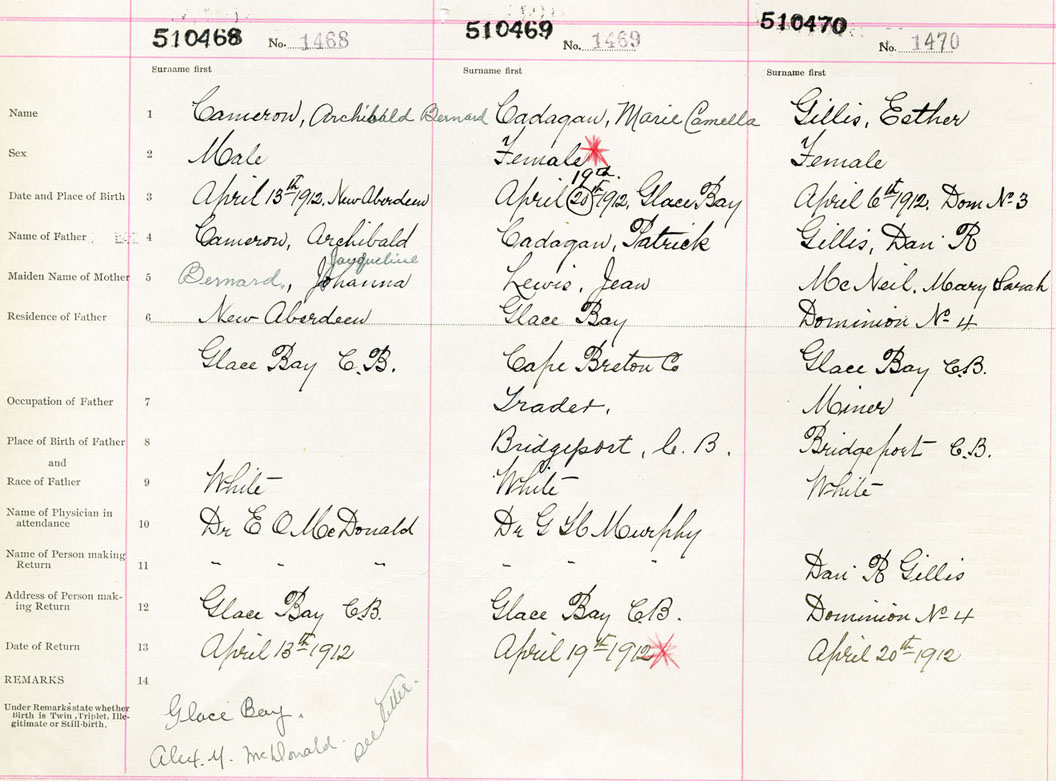 510468 No. 1468 510469 No. 1469 510470 No. 1470
Surname first Surname first Surname first
Name 1 Cameron, Archibald Bernard Cadagan, Marie Camella Gillis, Esther
Sex 2 Male Female Female
19th
Date and Place of Birth 3 April 13th 1912. New Aberdeen April 20th 1912, Glace Bay April 6th 1912. Dom No 3
Name of Father 4 Cameron, Archibald Cadagan, Patrick Gillis, Dan R
Jacqueline
Maiden Name of Mother 5 Bernard, Johanna Lewis, Jean McNeil, Mary Sarah
Residence of Father 6 New Aberdeen Glace Bay Dominion No 4
Glace Bay C.B. Cape Breton Co Glace Bay C.B.
Occupation of Father 7 Trader. Miner
Place of Birth of Father 8 Bridgeport, C.B. Bridgeport C.B.
and
Race of Father 9 White White White
Name of Physician in
attendance 10 Dr E O McDonald Dr G H Murphy
Name of Person making
Return 11 " " " " " " Dan R Gillis
Address of Person mak-
ing Return 12 Glace Bay C.B. Glace Bay C.B. Dominion No 4
Date of Return 13 April 13th 1912 April 19th 1912 April 20th 1912
REMARKS 14
Under Remarks state whether
Birth is Twin, Triplet, Ille-
gitimate or Still-birth.
Glace Bay.
Alex. Y. McDonald.
see letter.